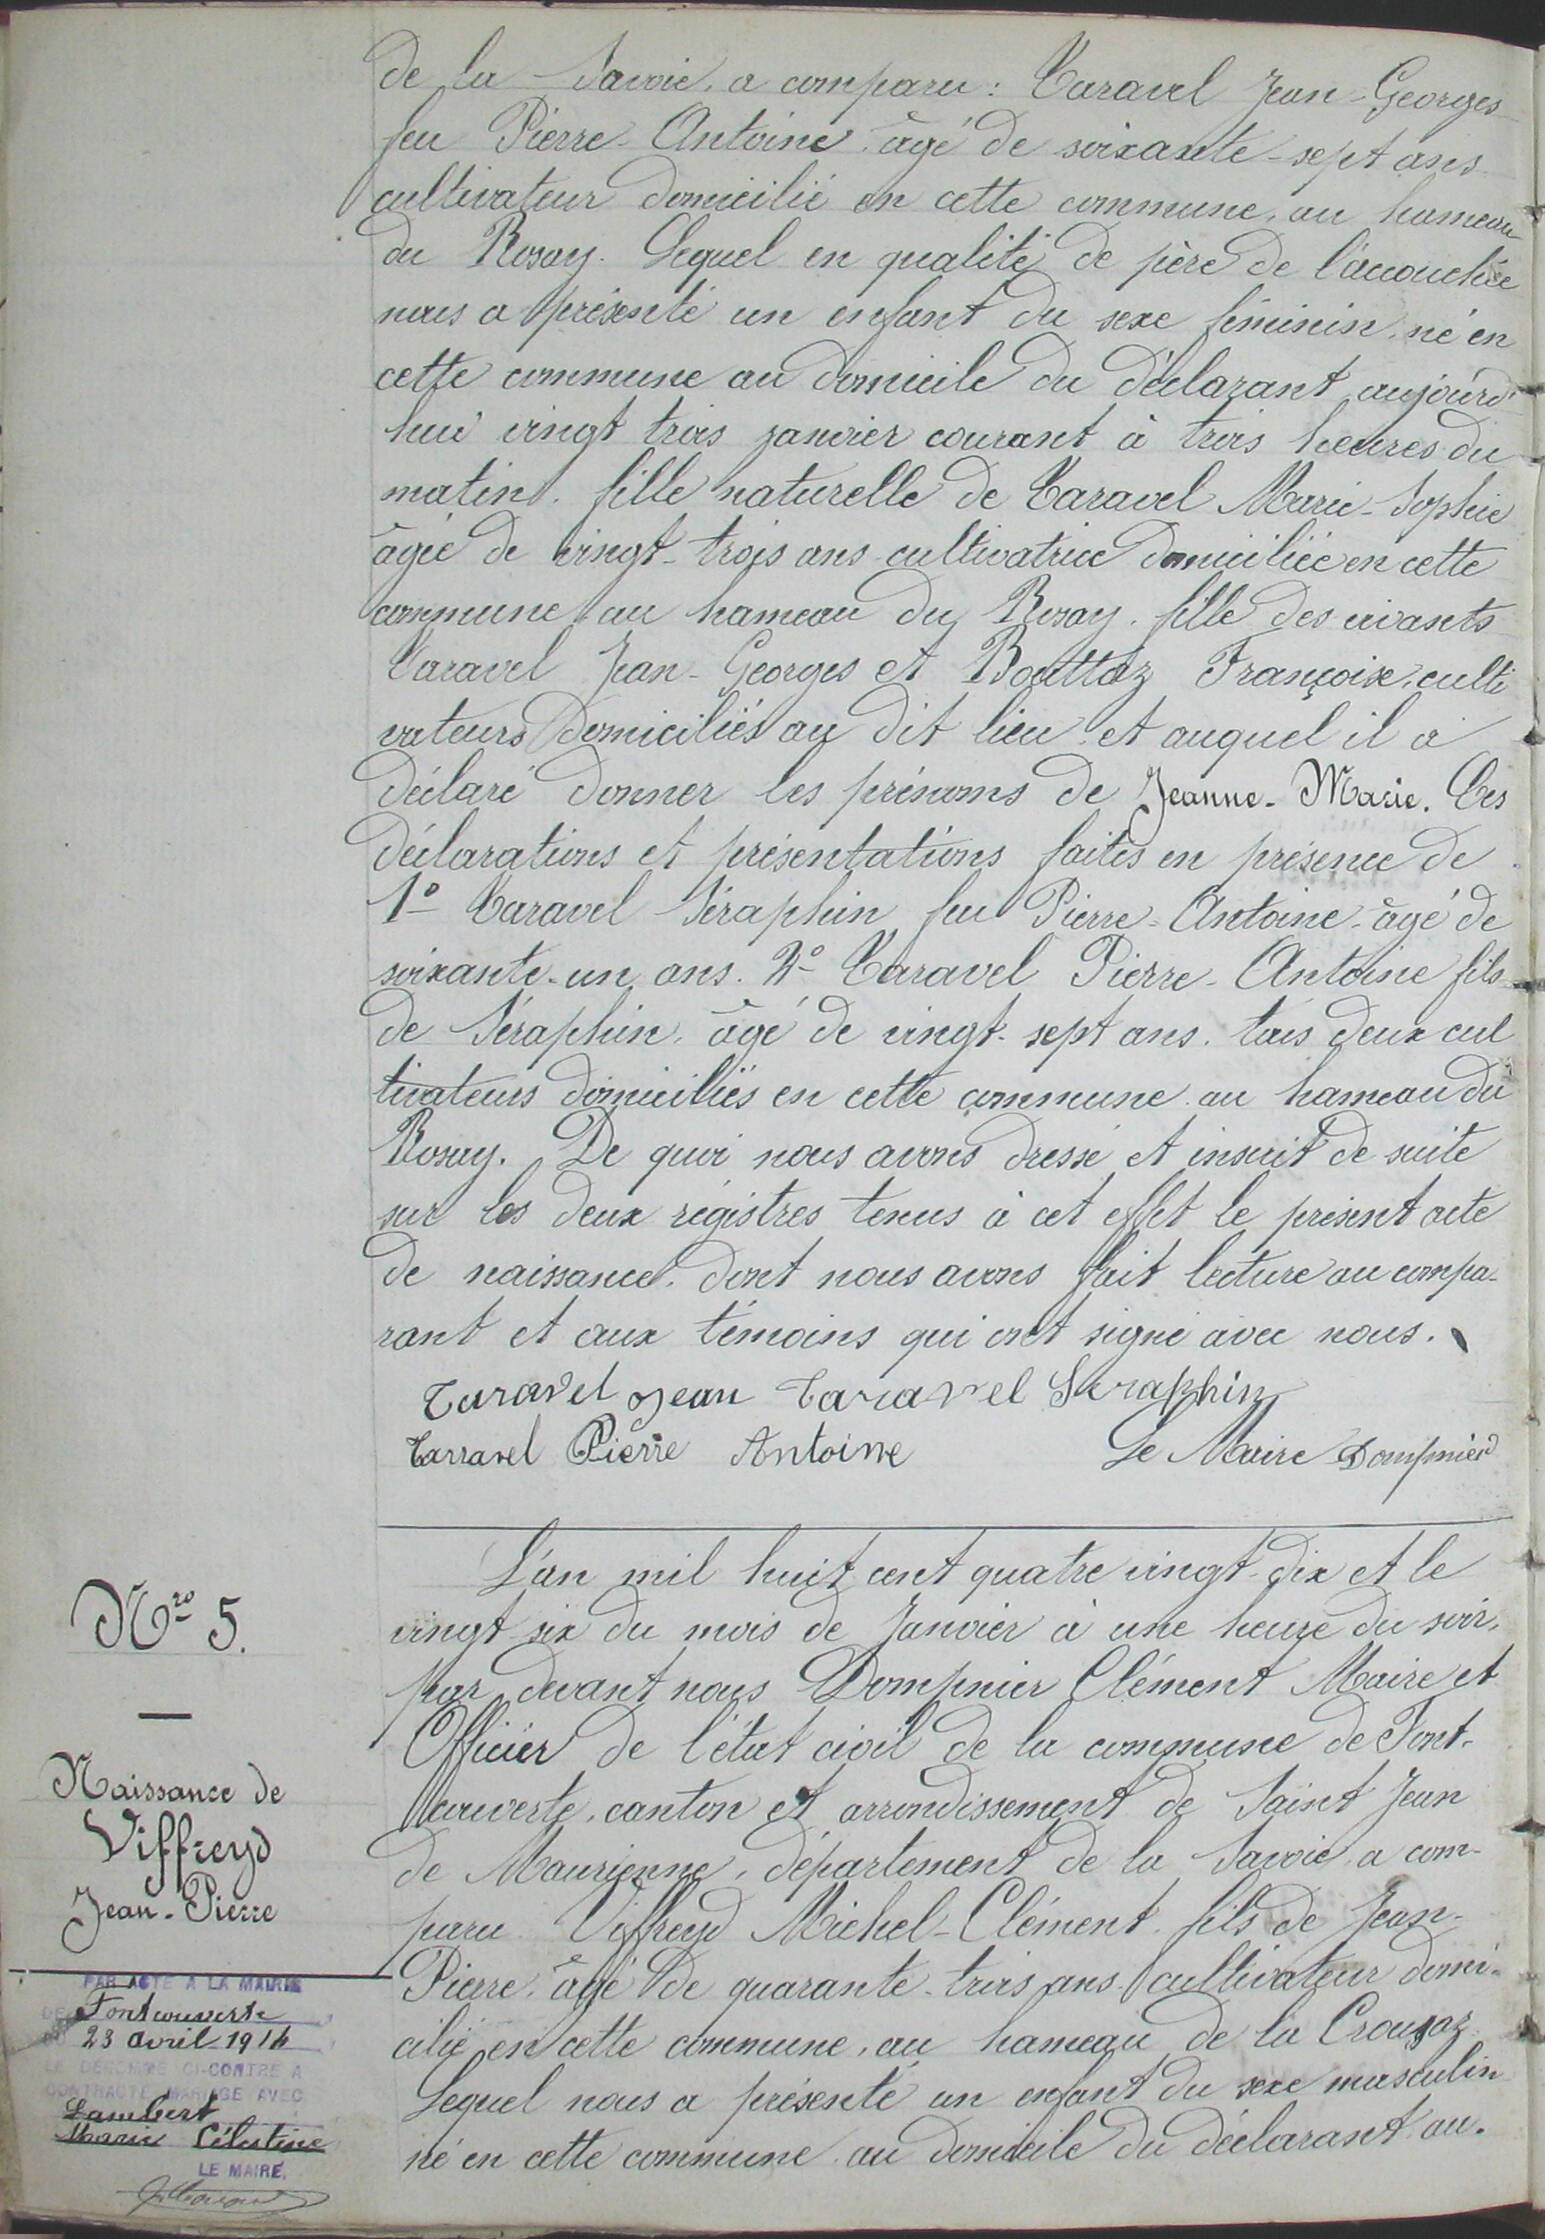 de la Savoie, a comparu : Taravel Jean-Georges
feu Pierre-Antoine, âgé de soixante-sept ans
cultivateur domicilié en cette commune, au hameau
du Rosay. Lequel en qualité de père de l'accouchée
nous a présenté un enfant du sexe féminin, né en
cette commune au domicile du déclarant aujourd'
hui vingt trois janvier courant à trois heures du
matin, fille naturelle de Taravel Marie-Sophie
âgée de vingt-trois ans cultivatrice domiciliée en cette
commune au hameau du Rosay, fille des vivants
Taravel Jean-Georges et Bouttaz Françoise, culti
vateurs domiciliés au dit lieu et auquel il a
déclaré donner les prénoms de Jeanne-Marie. Ces
déclarations et présentations faites en présence de
1° Taravel Séraphin feu Pierre-Antoine, âgé de
soixante-un ans. 2° Taravel Pierre-Antoine fils
de Séraphin, âgé de vingt-sept ans. tous deux cul
tivateurs domiciliés en cette commune au hameau du
Rosay. De quoi nous avons dressé et inscrit de suite
sur les deux régistres tenus à cet effet le présent acte
de naissance, dont nous avons fait lecture au compa-
rant et aux témoins qui ont signé avec nous.
Taravel Jean Taravel Séraphin
Tarravel Pierre Antoine Le Maire Dompnier
Nro 5.
Naissance de
Viffreyd
Jean-Pierre
L'an mil huit cent quatre vingt-dix et le
vingt six du mois de Janvier à une heure du soir,
par devant nous Dompnier Clément Maire et
Officier de l'état civil de la commune de Font-
couverte, canton et arrondissement de Saint Jean
de Maurienne, département de la Savoie, a com-
paru Viffreyd Michel-Clément fils de Jean-
Pierre, âgé de quarante-trois ans cultivateur domi-
cilié en cette commune, au hameau de la Crousaz
Lequel nous a présenté un enfant du sexe masculin
né en cette commune au domicile du déclarant au-
PAR ACTE A LA MAIRIE
DE Fontcouverte
DU 23 avril 1914
LE DÉNOMMÉ CI-CONTRE A
CONTRACTÉ MARIAGE AVEC
Lambert
Marie Célestine
LE MAIRE,